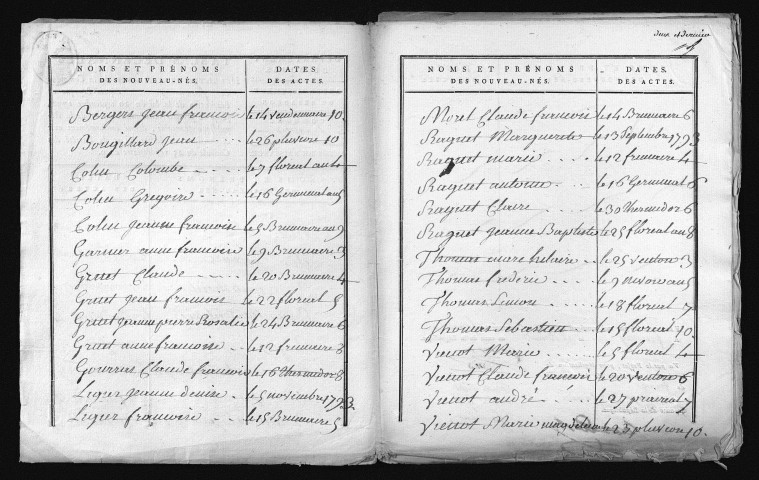 NOMS ET PRÉNOMS
DES NOUVEAU-NÉS.
DATES
DES ACTES.
Bergers jean francois le 14 vendemiaire 10.
Bougillard jean le 26 pluviose 10
Colin Colombe le 7 floreal an 4
Colin Gregoire le 16 Germinal an 5
Colin jeanne francoise le 5 Brumaire an 9
Garnier anne francoise le 9 Brumaire 3
Gruet Claude le 20 Brumaire 4
Gruet jean francois le 22 floreal 5
Gruet jeanne pierre Rosalie le 24 Brumaire 6
Gruet anne francoise le 12 frimaire 8
Gourrier Claude francois le 16 thermidor 8
Ligier jeanne denise le 5 novembre 1793
Ligier francoise le 15 Brumaire 5
deux et dernier
NOMS ET PRÉNOMS
DES NOUVEAU-NÉS.
DATES
DES ACTES.
Morel Claude francois le 14 Brumaire 6
Raguet Marguerite le 13 Septembre 1793
Raguet marie le 12 frimaire 4
Raguet antoine le 16 Germinal 6
Raguet Claire le 30 thermidor 6
Raguet jeanne Baptiste le 25 floreal an 8
Thomas marc hilaire le 25 ventose 3
Thomas frederic le 9 nivose an 5
Thomas Simon le 18 floreal 7
Thomas Sebastien le 15 floreal 10
Viennot Marie le 5 floreal 4
Viennot Claude francois le 20 ventose 6
Viennot andré le 27 prairial 7
Viennot Marie magdeleine le 23 pluviose 10.